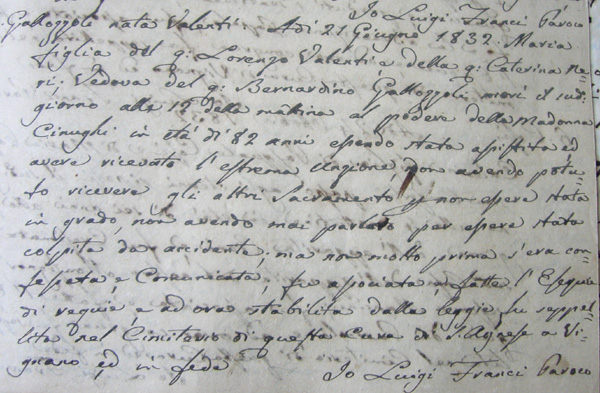 Io Luigi Franci Paroco
Gallozzoli nata Valenti. Adi 21 Giugno 1832. Maria
figlia del q: Lorenzo Valenti e della q: Caterina Ne=
ri, Vedova del q: Bernardino Gallozzoli morì il sud:
giorno alle 12 della mattina al podere della Madonna
Cinughi in età di 82 anni essendo stata assistita ed
avere ricevuto l'estrema unzione non avendo potu=
to ricevere gli altri Sacramento p non essere stata
in grado, non avendo mai parlato per essere stata
colpita da accidente; ma non molto prima s'era con=
fessata e Comunicata, fu associata, fatte l'Esequie
di requie, e ad ora stabilita dalla legge fu suppel=
lita nel Cimitero di questa Cura di S. Agnese a Vi=
gnano ed in fede
Io Luigi Franci Paroco